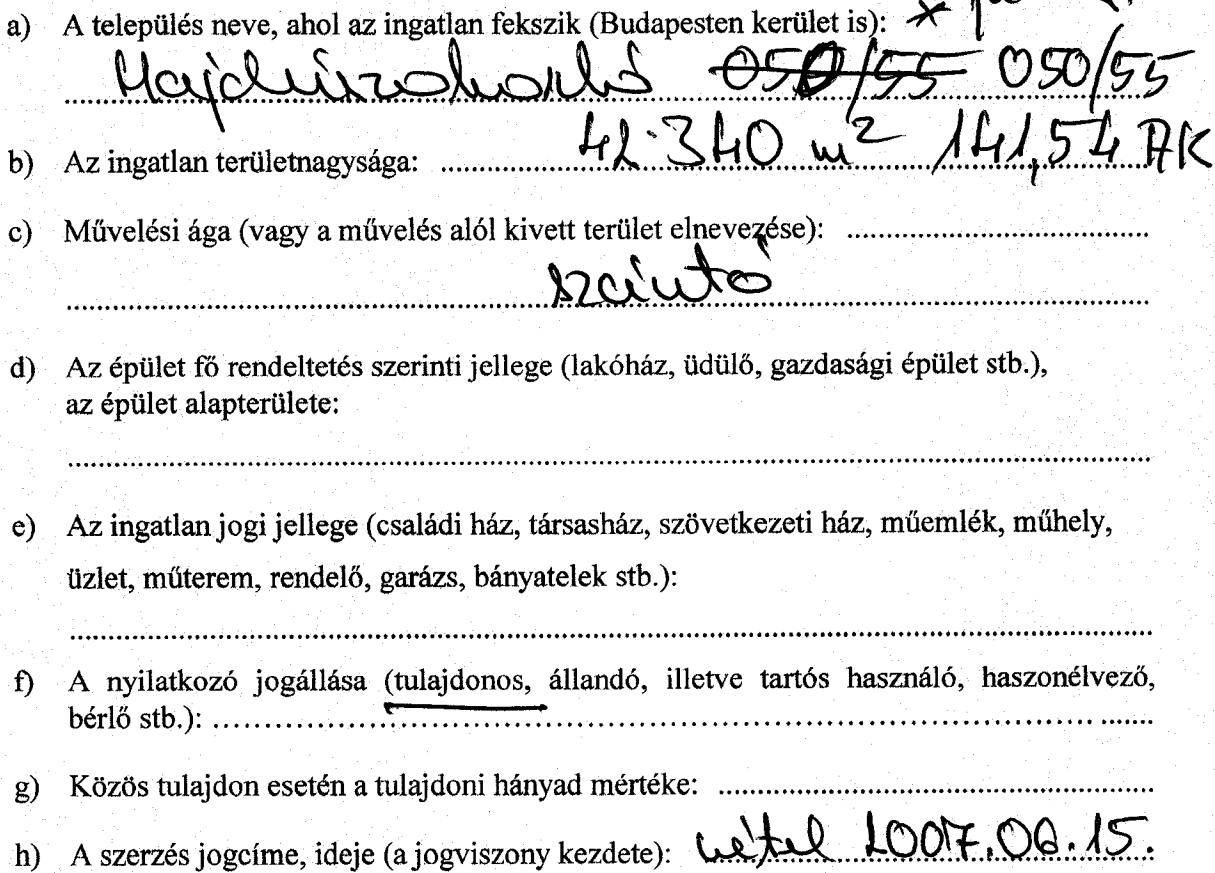 a) A település neve, ahol az ingatlan fekszik (Budapesten kerület is): *
Hajdúszoboszló 050/55 050/55
b) Az ingatlan területnagysága: 42.340 m² 141,54 AK
c) Művelési ága (vagy a művelés alól kivett terület elnevezése):
szántó
d) Az épület fő rendeltetés szerinti jellege (lakóház, üdülő, gazdasági épület stb.),
az épület alapterülete:
e) Az ingatlan jogi jellege (családi ház, társasház, szövetkezeti ház, műemlék, műhely,
üzlet, műterem, rendelő, garázs, bányatelek stb.):
f) A nyilatkozó jogállása (tulajdonos, állandó, illetve tartós használó, haszonélvező,
bérlő stb.):
g) Közös tulajdon esetén a tulajdoni hányad mértéke:
h) A szerzés jogcíme, ideje (a jogviszony kezdete): vétel 2007.06.15.